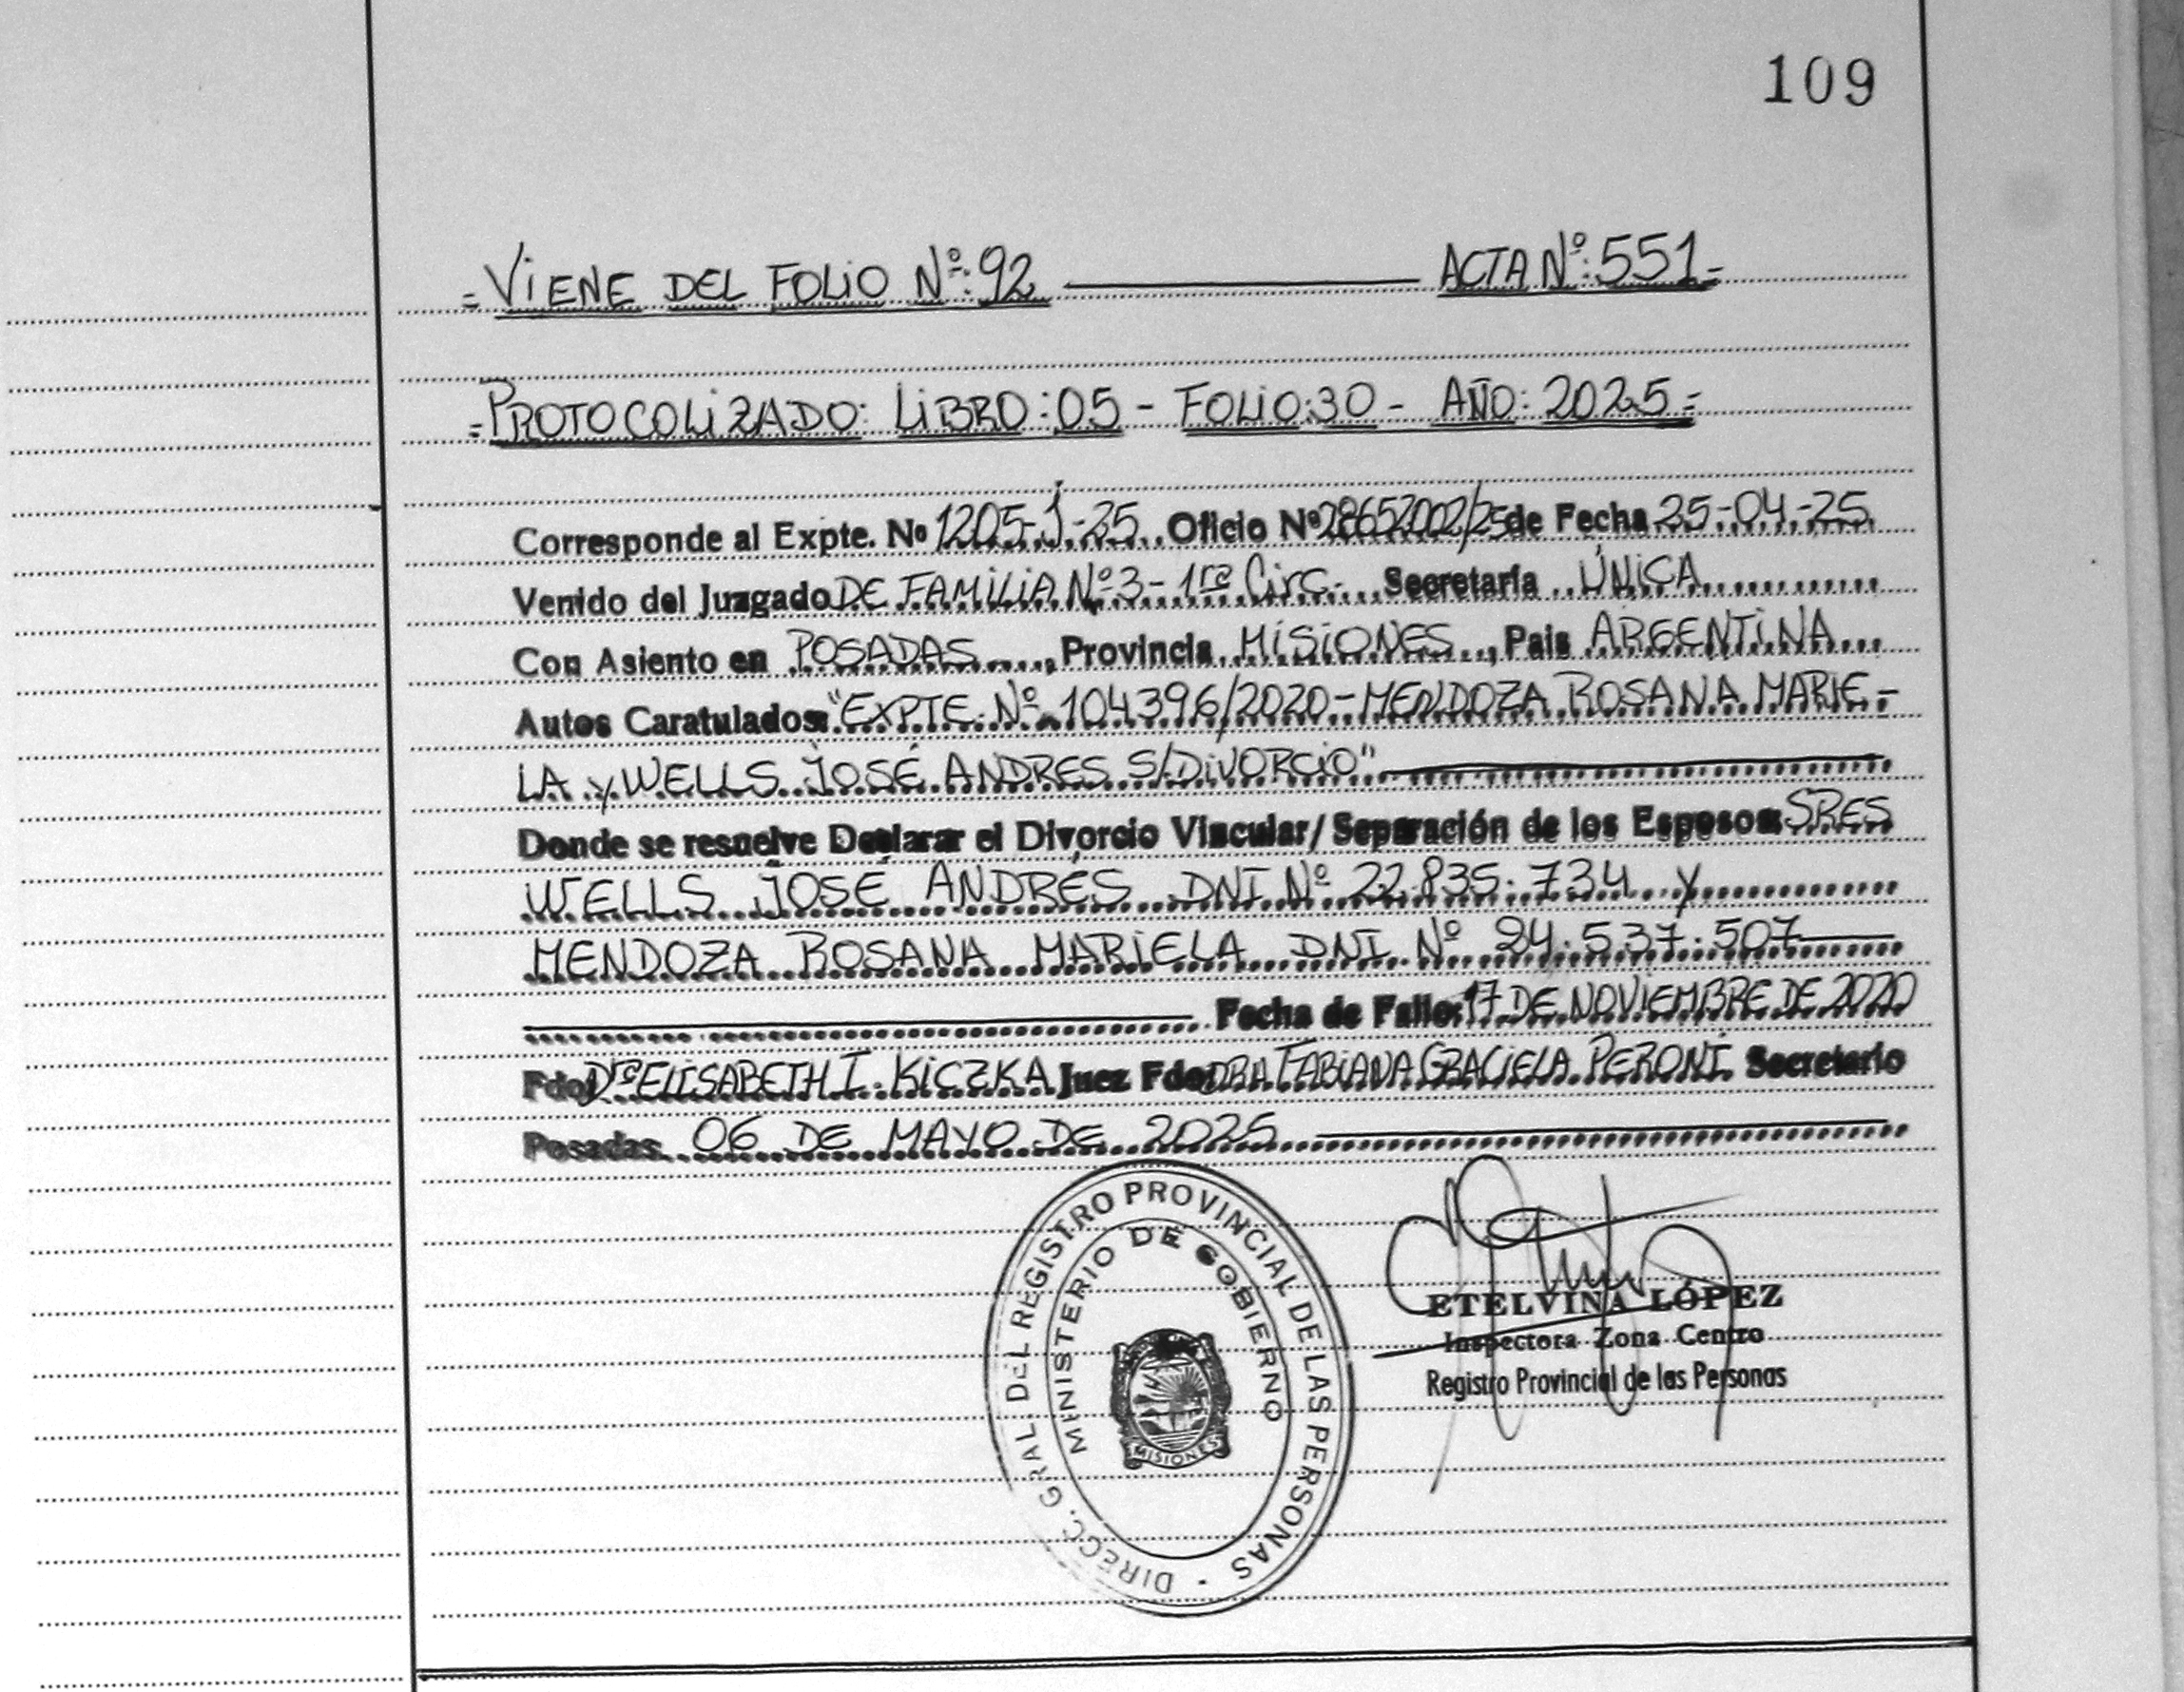 109
=VIENE DEL FOLIO Nº:92 ———— ACTA Nº:551=
=PROTOCOLIZADO: LIBRO:05 - FOLIO:30 - AÑO: 2025=
Corresponde al Expte. Nº 1205-J-25 Oficio Nº 28652002/25 de Fecha 25-04-25
Venido del Juzgado DE FAMILIA Nº 3 - 1ra Circ. Secretaría ÚNICA
Con Asiento en POSADAS, Provincia MISIONES, Pais ARGENTINA
Autos Caratulados: "EXPTE. Nº 104396/2020 - MENDOZA ROSANA MARIE-
LA y WELLS JOSÉ ANDRES S/DIVORCIO"
Donde se resuelve Declarar el Divorcio Vincular/Separación de los Esposos: SRES
WELLS JOSÉ ANDRÉS DNI Nº 22.835.734 y
MENDOZA ROSANA MARIELA DNI Nº 24.537.507
Fecha de Fallo: 17 DE NOVIEMBRE DE 2020
Fdo: Dra ELISABETH I. KICZKA Juez Fdo: DRA FABIANA GRACIELA PERONI Secretario
Posadas 06 DE MAYO DE 2025
DIRECC. GRAL. DEL REGISTRO PROVINCIAL DE LAS PERSONAS
MINISTERIO DE GOBIERNO
MISIONES
ETELVINA LÓPEZ
Inspectora Zona Centro
Registro Provincial de las Personas